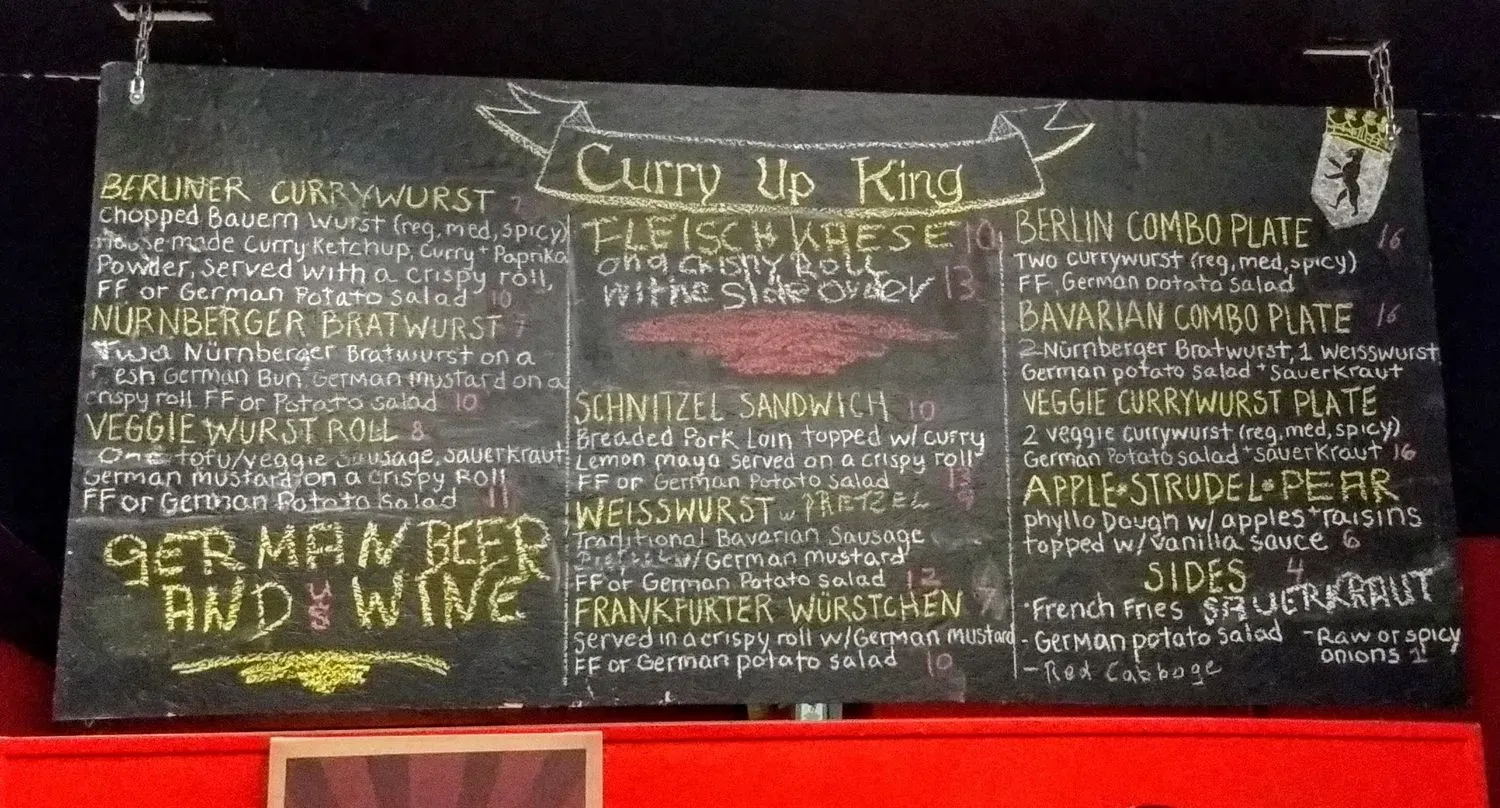 Curry Up King
BERLINER CURRYWURST 7
Chopped Bauern Wurst (reg, med, spicy)
House made Curry Ketchup, Curry + Paprika
Powder, Served with a crispy roll,
FF or German Potato Salad 10
NÜRNBERGER BRATWURST 7
Two Nürnberger Bratwurst on a
esh German Bun, German mustard on a
crispy roll FF or Potato salad 10
VEGGIE WURST ROLL 8
One tofu/veggie Sausage, sauerkraut
German mustard on a crispy Roll
FF or German Potato Salad 11
GERMAN BEER
AND US WINE
FLEISCHKAESE 10
on a crispy Roll
withe Side order 13
SCHNITZEL SANDWICH 10
Breaded Pork Loin topped w/ curry
Lemon mayo served on a crispy roll
FF or German Potato Salad 13
WEISSWURST w PRETZEL 9
Traditional Bavarian Sausage
w/German mustard
FF or German Potato Salad 12
FRANKFURTER WÜRSTCHEN 7
Served in a crispy roll w/German mustard
FF or German potato salad 10
BERLIN COMBO PLATE 16
TWO currywurst (reg, med, spicy)
FF, German potato Salad
BAVARIAN COMBO PLATE 16
2 Nürnberger Bratwurst, 1 Weisswurst
German potato salad + Sauerkraut
VEGGIE CURRYWURST PLATE
2 veggie currywurst (reg, med, spicy)
German Potato salad + sauerkraut 16
APPLE • STRUDEL • PEAR
phyllo Dough w/ apples + raisins
topped w/ vanilla sauce 6
SIDES 4
• French Fries SAUERKRAUT
- German potato Salad - Raw or spicy
onions 1
- Red Cabboge